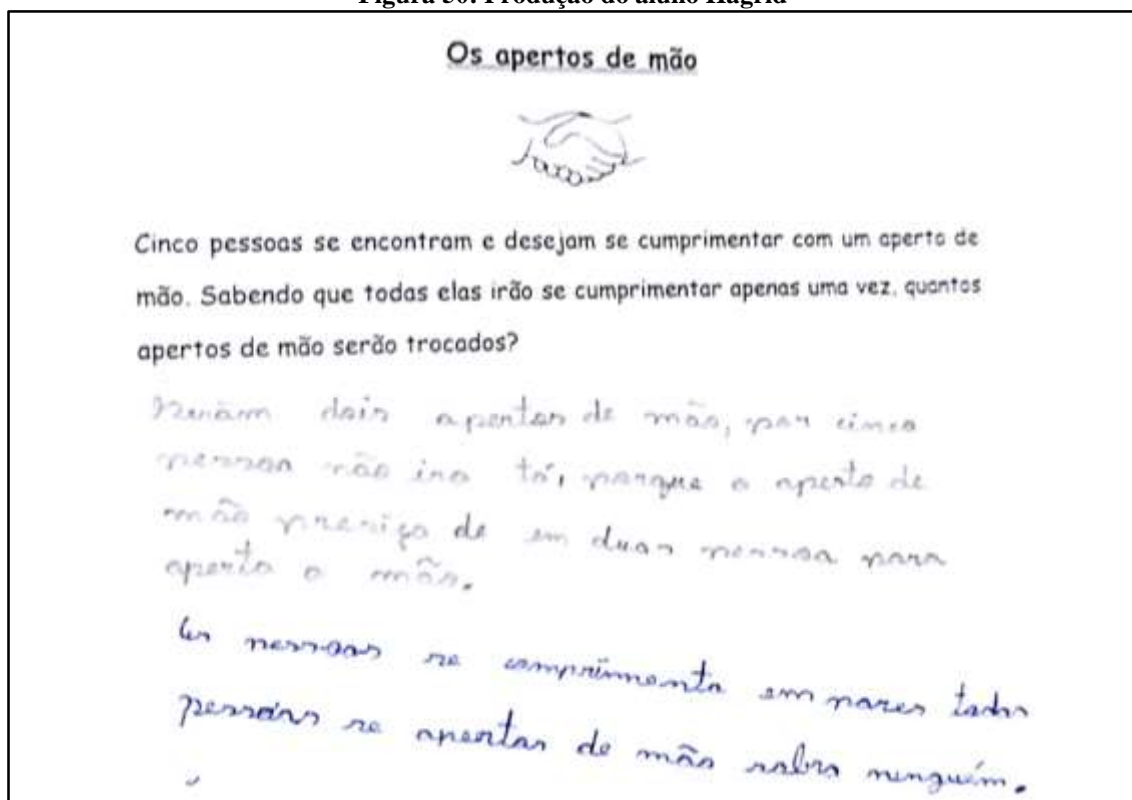 Figura 30: Produção do aluno Hagrid
Os apertos de mão
Cinco pessoas se encontram e desejam se cumprimentar com um aperto de
mão. Sabendo que todas elas irão se cumprimentar apenas uma vez, quantos
apertos de mão serão trocados?
dois apertos de mão, por cinco
pessoa não ira porque o aperto de
mão de em duas pessoa para
aperto o mão.
pessoas se comprimenta em pares
pessoas se apertar de mão sobra ninguém.